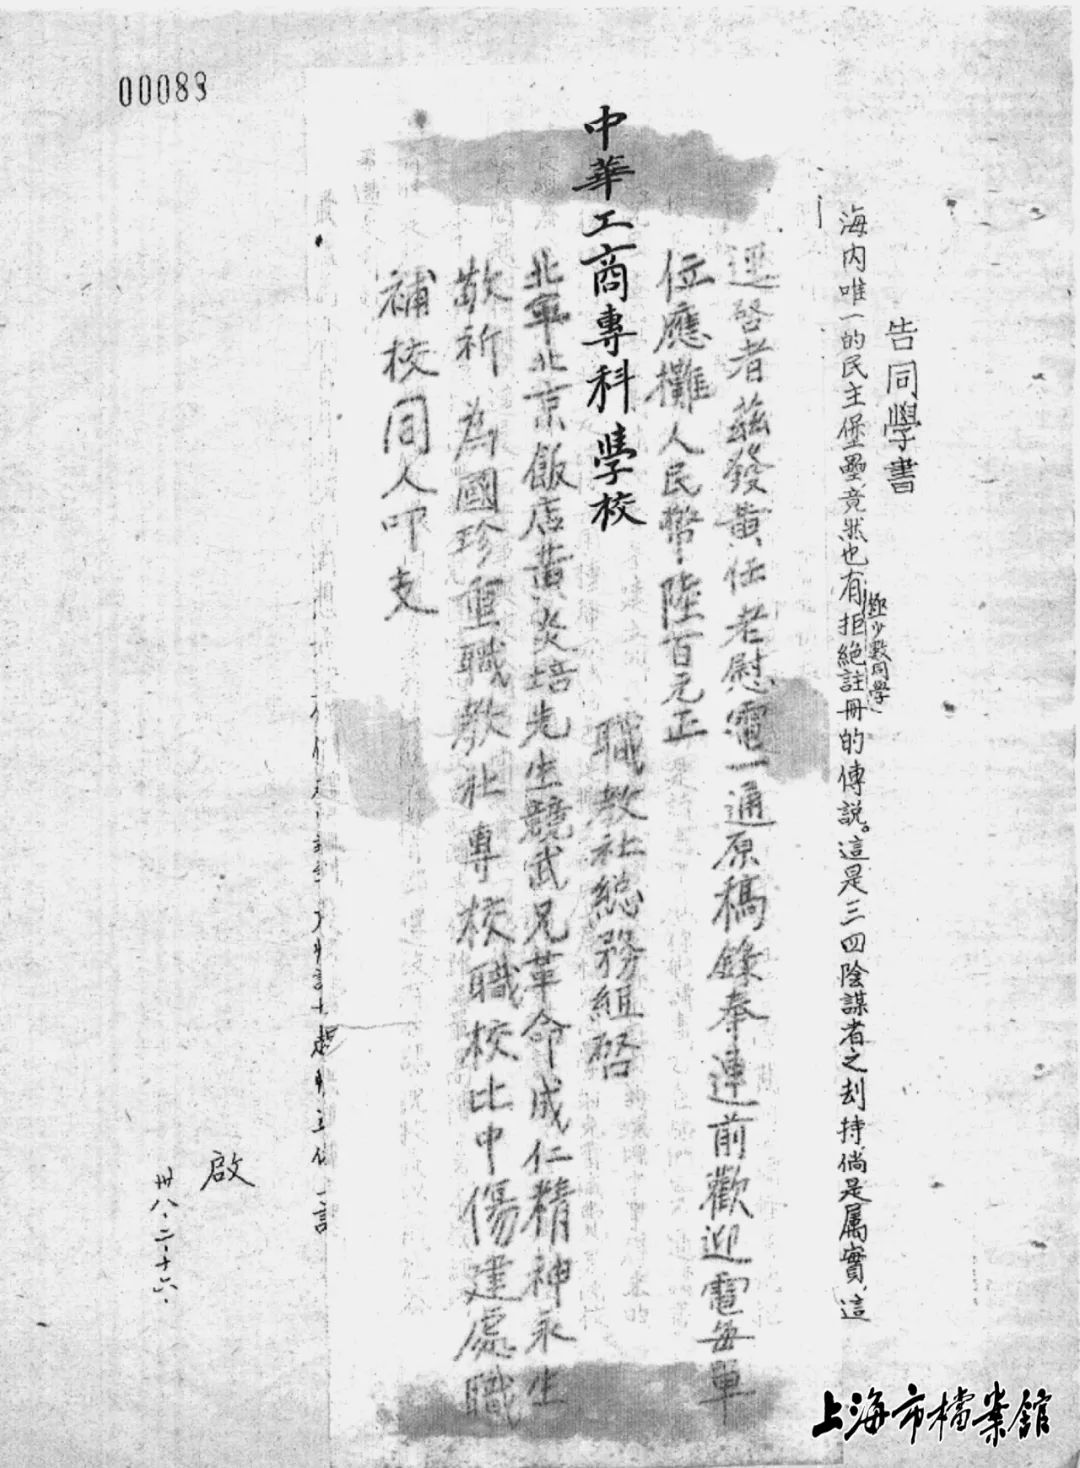 00083
告同學書
海内唯一的民主堡壘竟然也有極少數同學拒絕註冊的傳説。這是三四陰謀者之刦持，倘是属實，這
逕啓者兹發黄任老慰電一通原稿錄奉連前歡迎電每單
位應攤人民幣陸百元正
中華工商專科學校
職教社総務組啓
北平北京飯店黄炎培先生競武兄革命成仁精神永生
敬祈為國珍重職教社專校職校比中傷建處職
補校同人叩支
啟
卅八．二．十六．
上海市檔案館